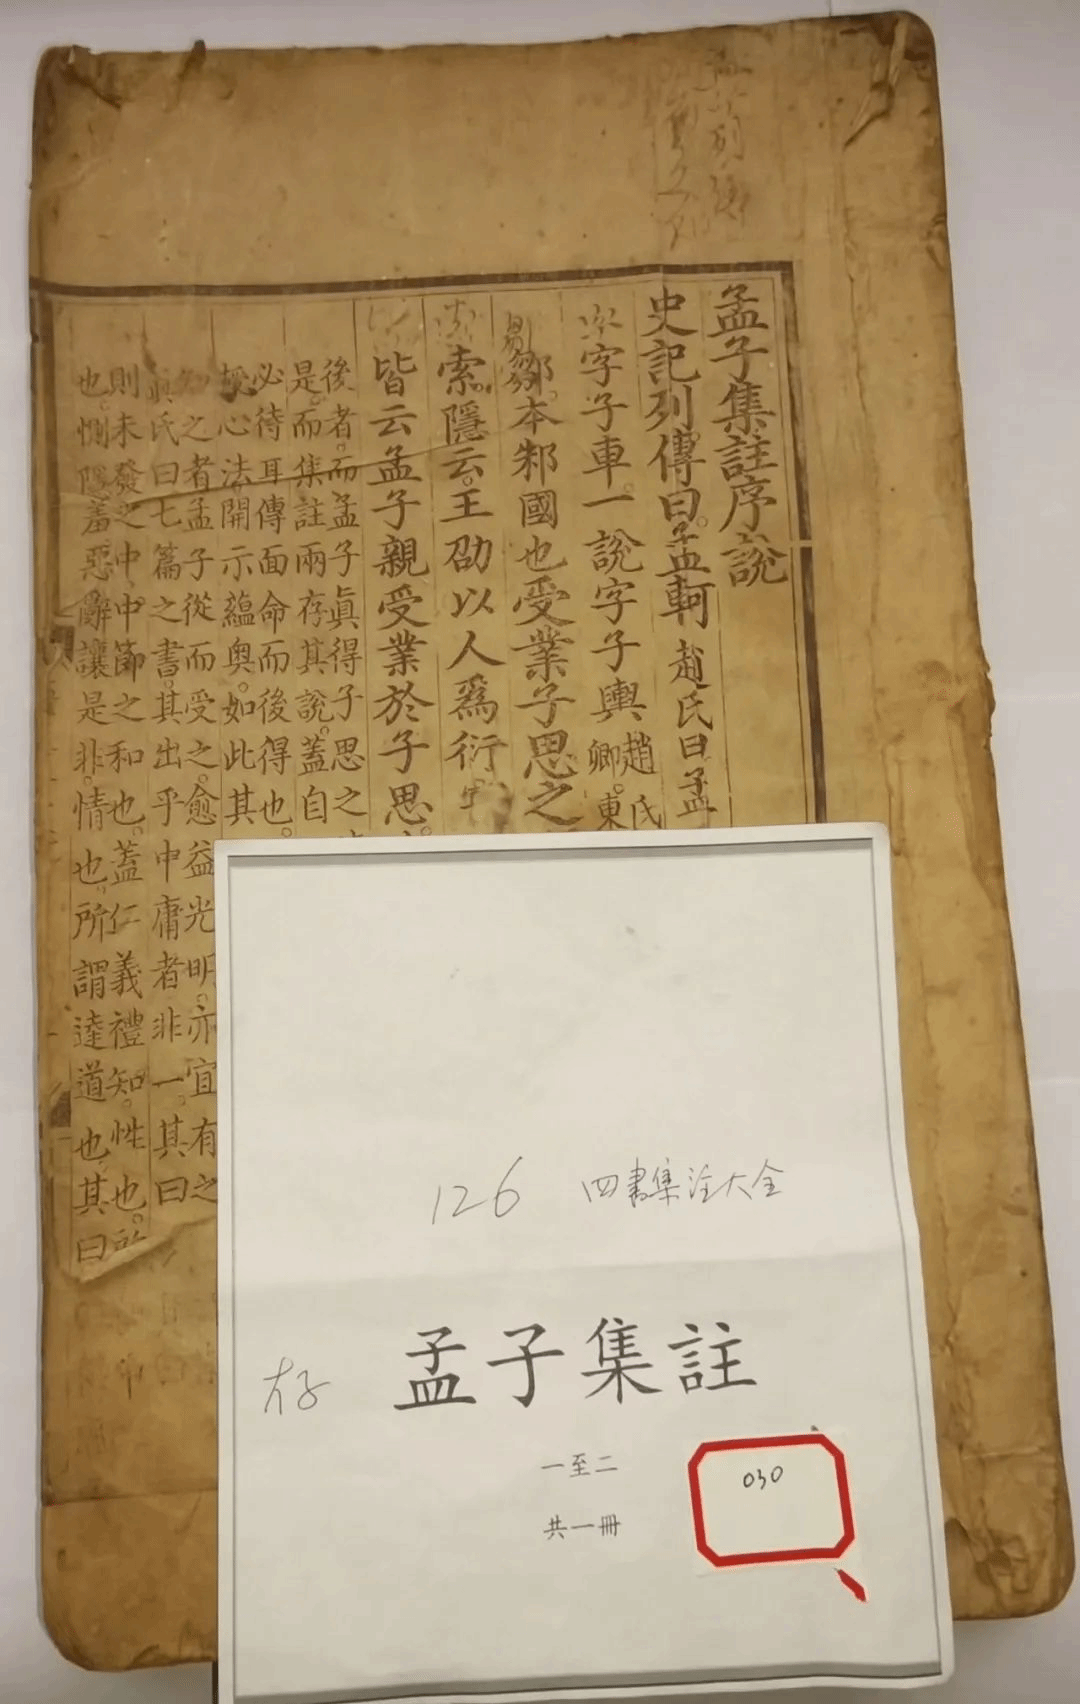 孟子集註序說
史記列傳曰孟軻趙氏曰孟
字子車一說字子輿趙氏
卿東
鄒本邾國也受業子思之
索隱云王劭以人爲衍
皆云孟子親受業於子思
後者而孟子眞得子思之
是而集註兩存其說蓋自
必待耳傳面命而後得也
授心法開示蘊奧如此其
知之者孟子從而受之愈益光明亦宜有之
眞氏曰七篇之書其出乎中庸者非一其曰
則未發之中中節之和也蓋仁義禮知性也所
也惻隱羞惡辭讓是非情也所謂達道也其曰
126 四書集注大全
存 孟子集註
一至二
共一冊
030